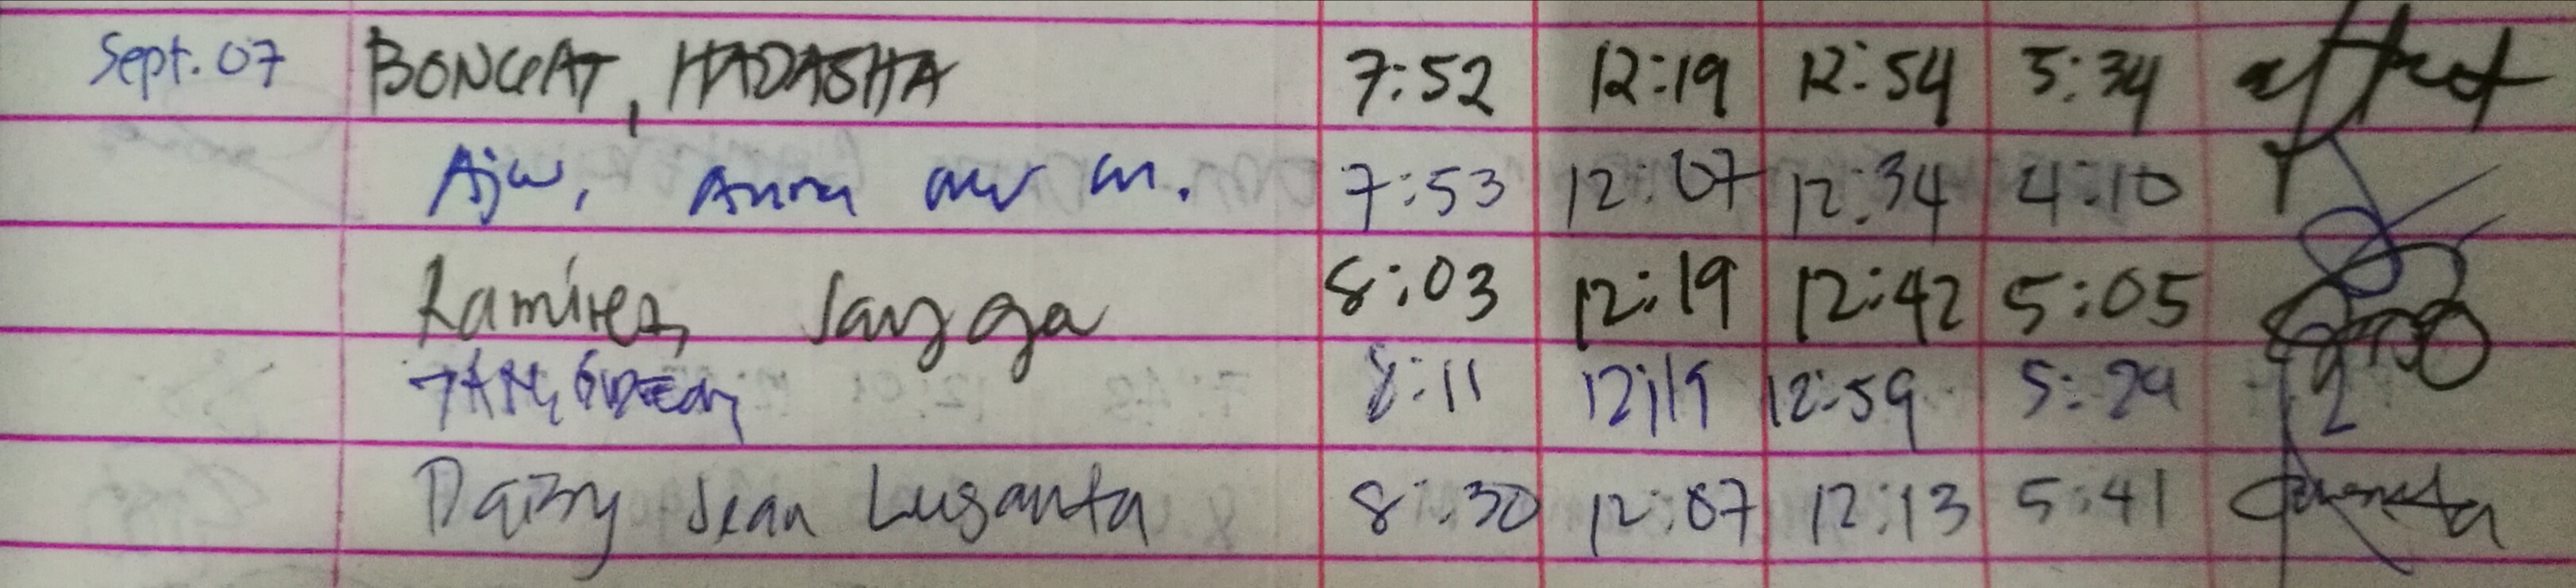 Sept. 07 BONGGAT, HADASHA 7:52 12:19 12:54 5:34
Anna m. 7:53 12:07 12:34 4:10
Ramirez, Jayga 8:03 12:19 12:42 5:05
8:11 12:19 12:59 5:29
Daizy Jean Lusanta 8:30 12:07 12:13 5:41